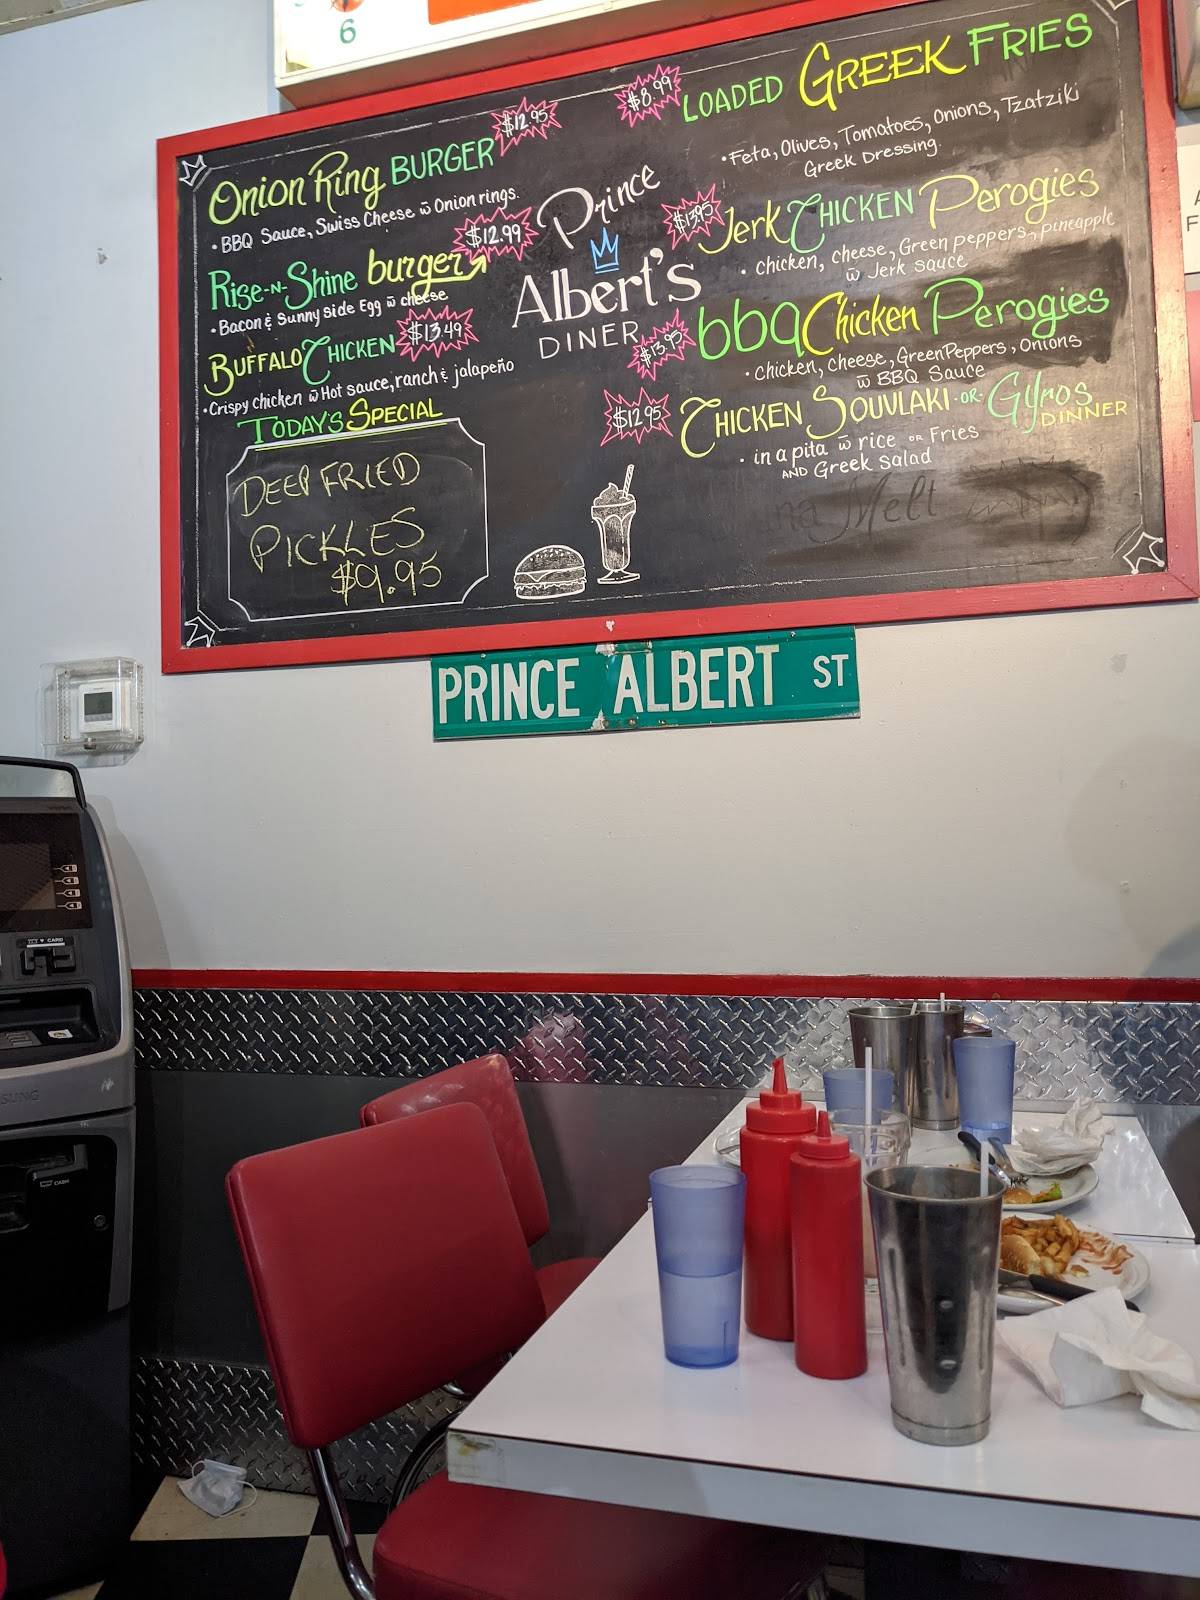 6
Onion Ring BURGER $12.95
• BBQ Sauce, Swiss Cheese w̄ Onion rings.
Rise-N-Shine burger $12.99
• Bacon & Sunny side Egg w̄ cheese
BUFFALO CHICKEN $13.49
• Crispy chicken w̄ Hot sauce, ranch & jalapeño
TODAY'S SPECIAL
DEEP FRIED
PICKLES
$9.95
Prince
Albert's
DINER
$8.99 LOADED GREEK FRIES
• Feta, Olives, Tomatoes, Onions, Tzatziki
Greek Dressing.
$13.95 Jerk CHICKEN Perogies
• chicken, cheese, Green peppers, pineapple
w̄ Jerk sauce
$13.95 bbq Chicken Perogies
• chicken, cheese, Green Peppers, Onions
w̄ BBQ Sauce
$12.95 CHICKEN SOUVLAKI -OR- Gyros
DINNER
• in a pita w̄ rice OR Fries
AND Greek Salad
na Melt
PRINCE ALBERT ST
CARD
SUNG
CASH